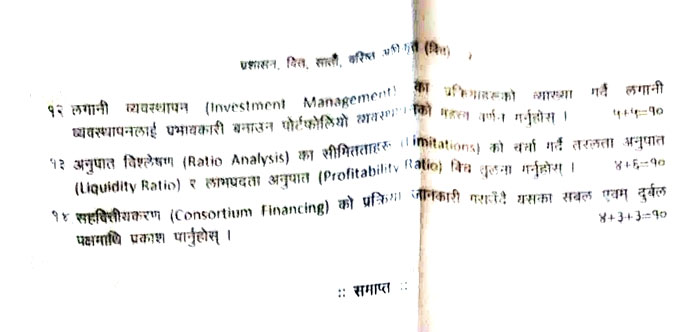 प्रशासन, वित्त, सातौं, वरिष्ठ (वित्त)
१२ लगानी व्यवस्थापन (Investment Management) का प्रक्रियाहरूको व्याख्या गर्दै लगानी
व्यवस्थापनलाई प्रभावकारी बनाउन पोर्टफोलियो व्यवस्थापनको महत्व वर्णन गर्नुहोस् । ५+५=१०
१३ अनुपात विश्लेषण (Ratio Analysis) का सीमितताहरू (Limitations) को चर्चा गर्दै तरलता अनुपात
(Liquidity Ratio) र लाभप्रदता अनुपात (Profitability Ratio) बिच तुलना गर्नुहोस् । ४+६=१०
१४ सहवित्तीयकरण (Consortium Financing) को प्रक्रिया जानकारी गराउँदै यसका सबल एवम् दुर्बल
पक्षमाथि प्रकाश पार्नुहोस् । ४+३+३=१०
:: समाप्त ::